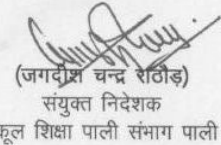 (जगदीश चन्द्र राठौड़)
संयुक्त निदेशक
कूल शिक्षा पाली संभाग पाली